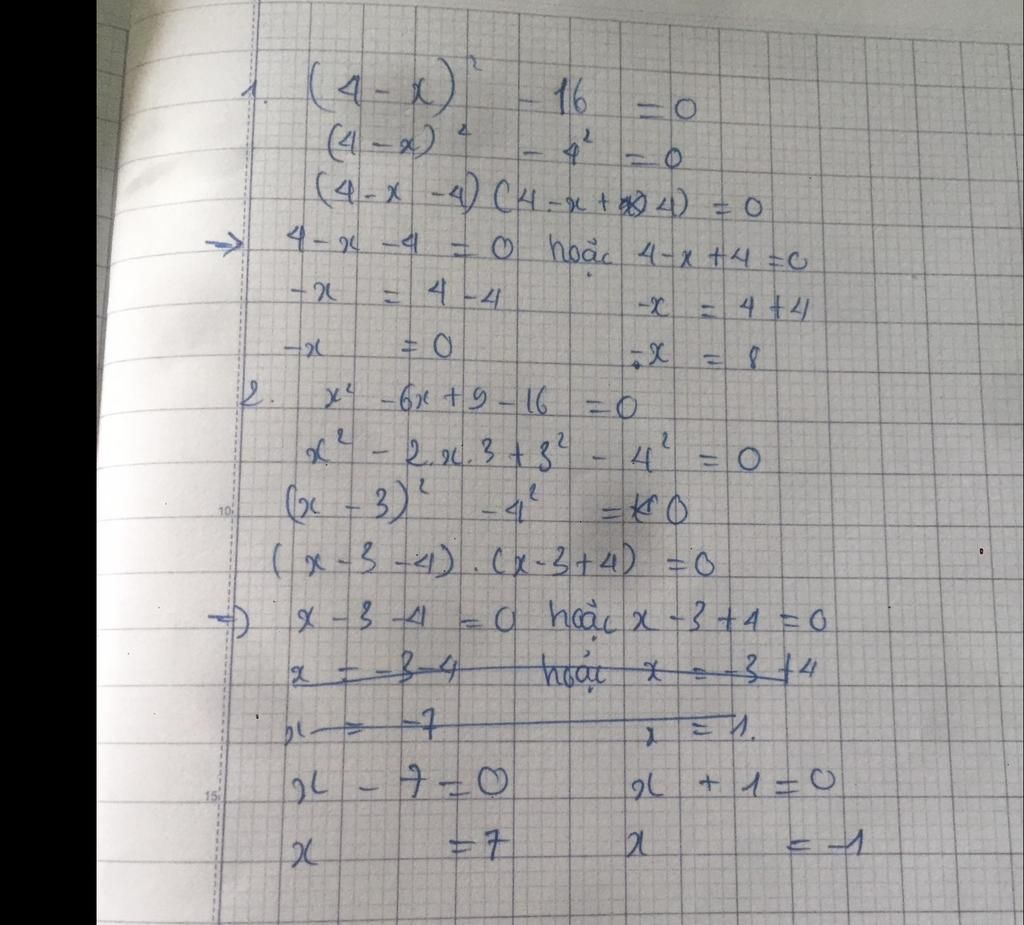 1. (4 - x)² - 16 = 0
(4 - x)² - 4² = 0
(4 - x - 4) (4 - x + 4) = 0
→ 4 - x - 4 = 0 hoặc 4 - x + 4 = 0
-x = 4 - 4 -x = 4 + 4
-x = 0 -x = 8
2. x² - 6x + 9 - 16 = 0
x² - 2.x.3 + 3² - 4² = 0
10
(x - 3)² - 4² = 0
(x - 3 - 4) . (x - 3 + 4) = 0
⇒ x - 3 - 4 = 0 hoặc x - 3 + 4 = 0
x = -3 - 4 hoặc x = -3 + 4
x = -7 x = 1.
15
x - 7 = 0 x + 1 = 0
x = 7 x = -1